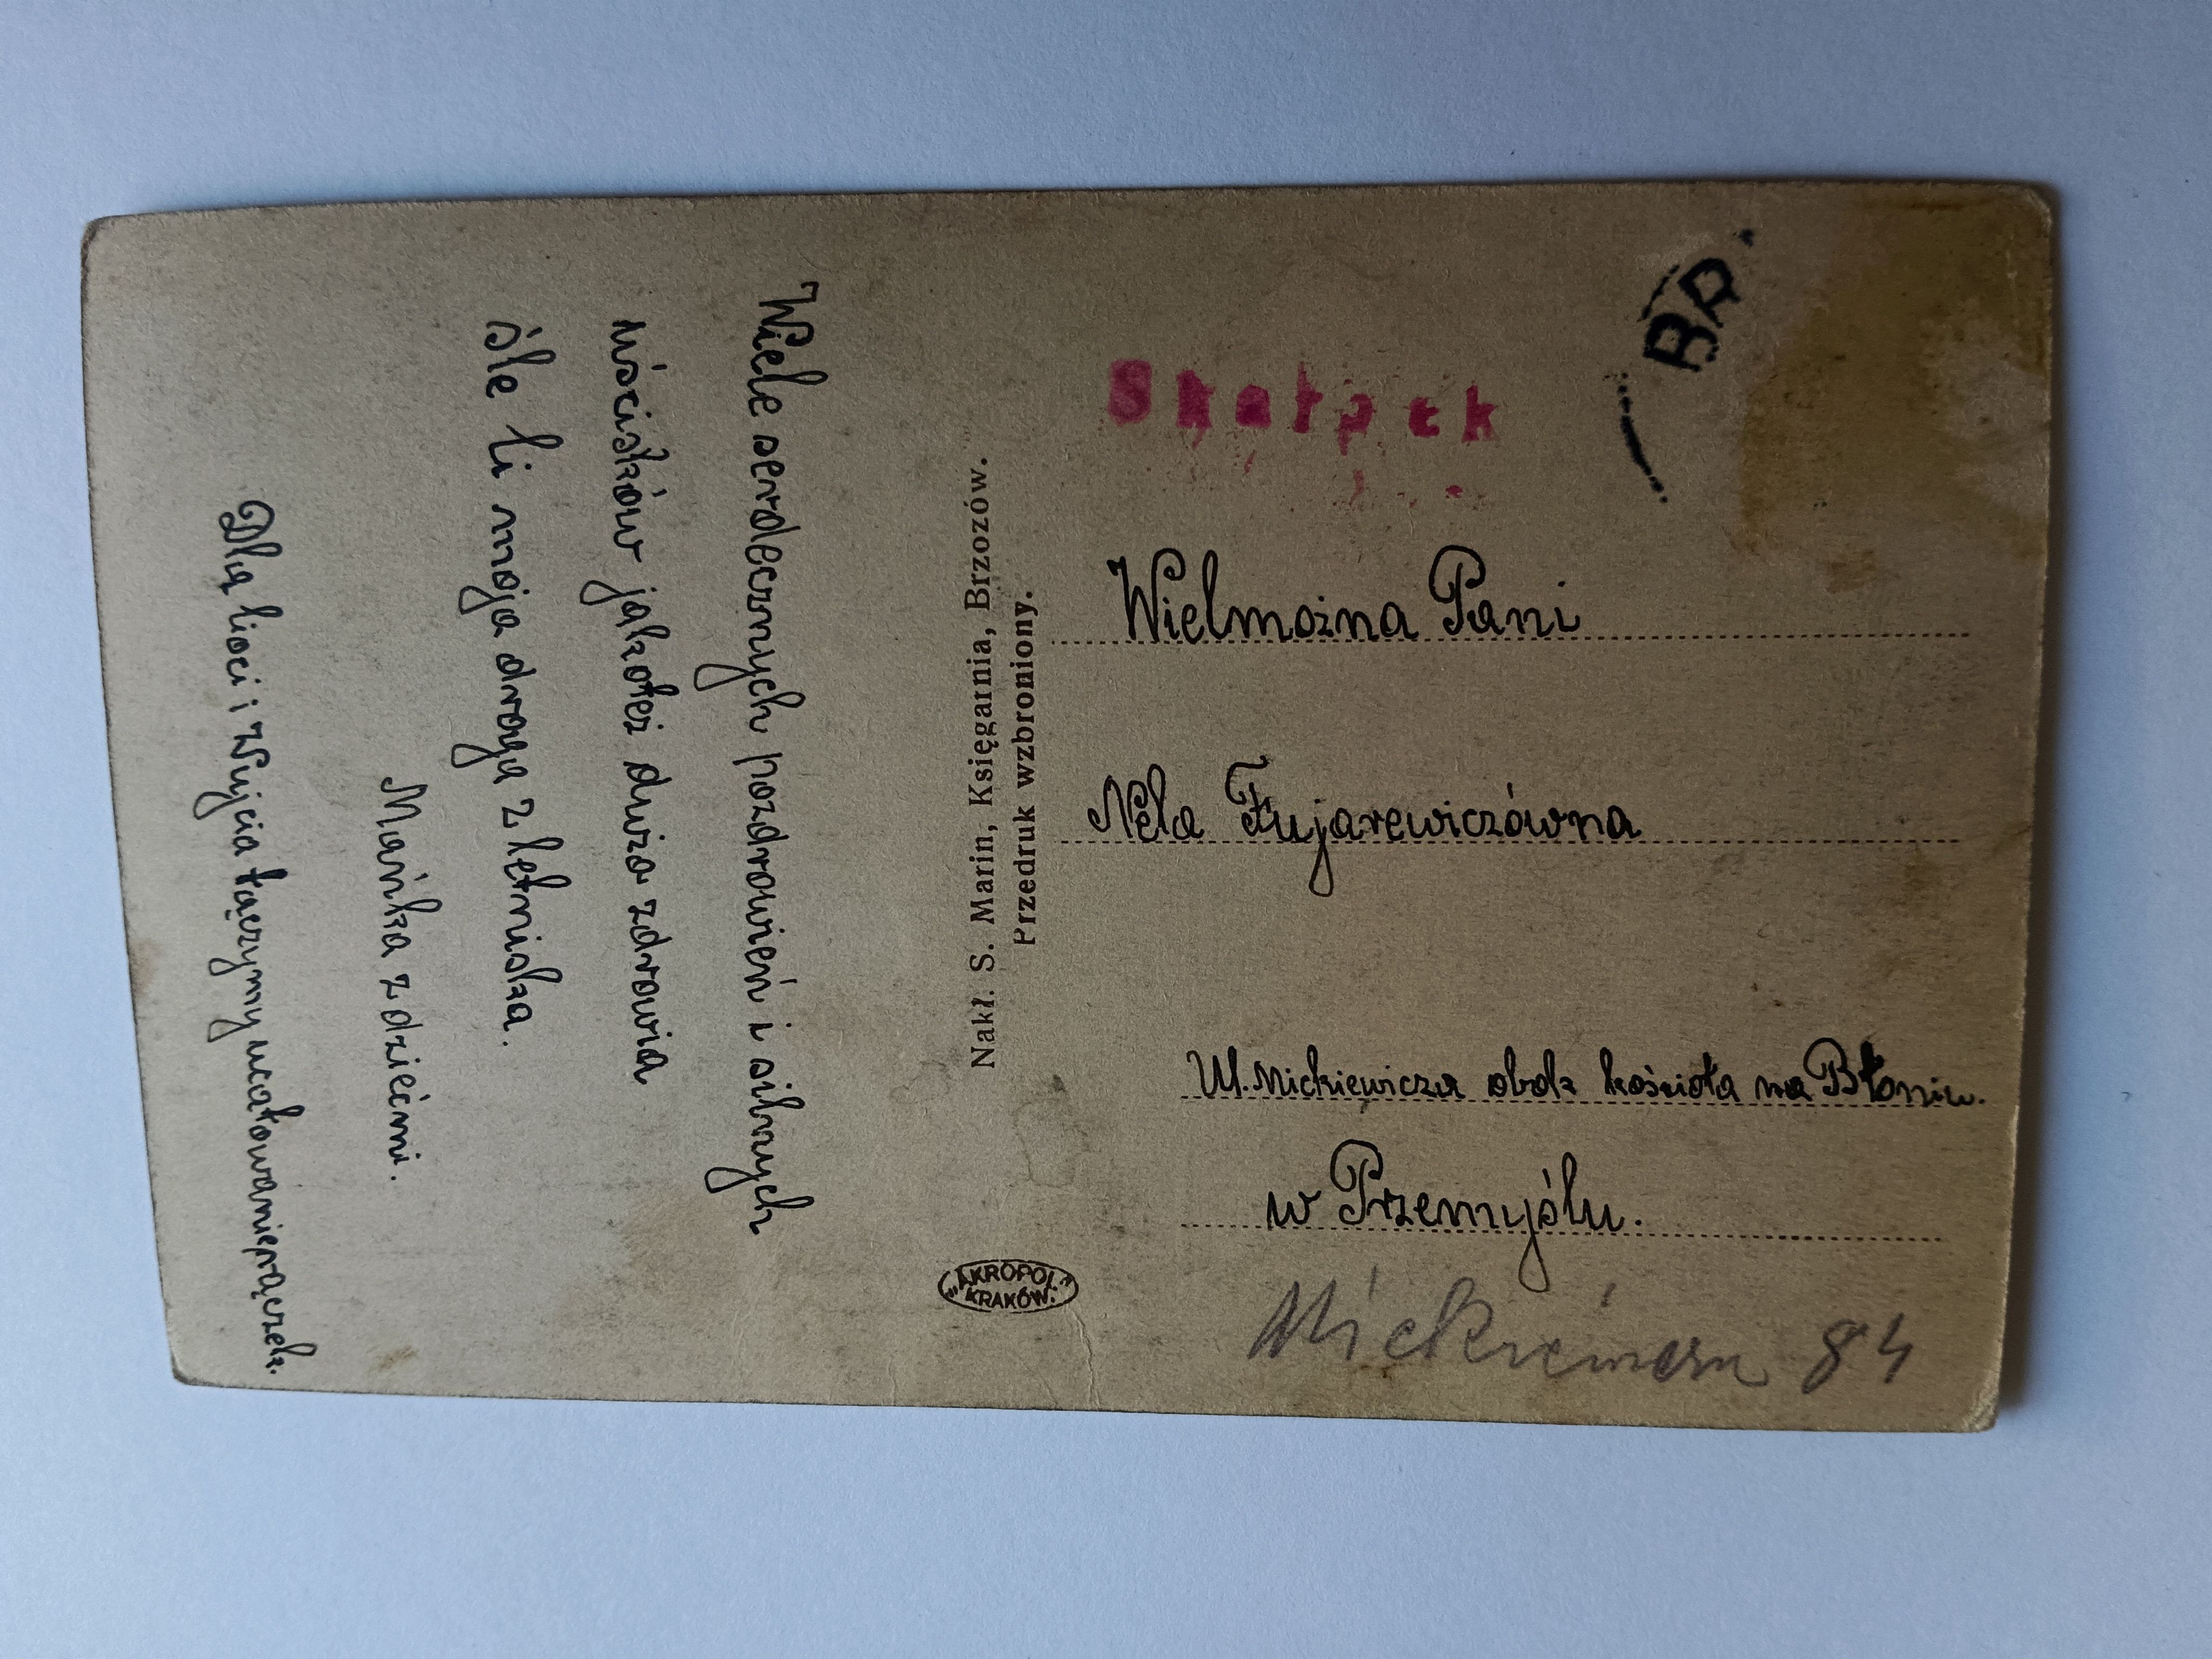 Wiele serdecznych pozdrowień i silnych
uścisków jakoteż dużo zdrowia
śle Ci moja droga z letniska.
Mańka z dziećmi.
Dla Cioci i Wujcia łączymy ucałowanie rączek.
Nakł. S. Marin, Księgarnia, Brzozów.
Przedruk wzbroniony.
„AKROPOL”
KRAKÓW.
BR
Skałpek
Wielmożna Pani
Nela Fujarewiczówna
Ul. Mickiewicza obok kościoła na Błoniu.
w Przemyślu.
Mickiewicza 84